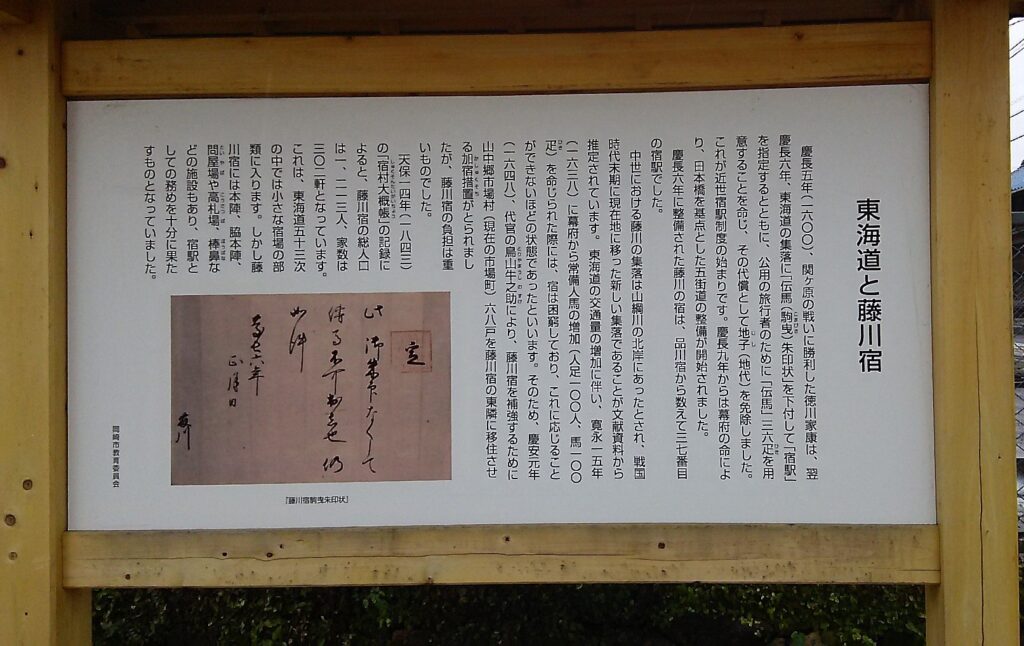 東海道と藤川宿
慶長五年(一六〇〇)、関ヶ原の戦いに勝利した徳川家康は、翌
慶長六年、東海道の集落に「伝馬(駒曳)朱印状」を下付して「宿駅」
を指定するとともに、公用の旅行者のために「伝馬」三六疋を用
意することを命じ、その代償として地子(地代)を免除しました。
これが近世宿駅制度の始まりです。慶長九年からは幕府の命によ
り、日本橋を基点とした五街道の整備が開始されました。
慶長六年に整備された藤川の宿は、品川宿から数えて三七番目
の宿駅でした。
中世における藤川の集落は山綱川の北岸にあったとされ、戦国
時代末期に現在地に移った新しい集落であることが文献資料から
推定されています。東海道の交通量の増加に伴い、寛永一五年
(一六三八)に幕府から常備人馬の増加(人足一〇〇人、馬一〇〇
疋)を命じられた際には、宿は困窮しており、これに応じること
ができないほどの状態であったといいます。そのため、慶安元年
(一六四八)、代官の鳥山牛之助により、藤川宿を補強するために
山中郷市場村(現在の市場町)六八戸を藤川宿の東隣に移住させ
る加宿措置がとられまし
たが、藤川宿の負担は重
いものでした。
天保一四年(一八四三)
の「宿村大概帳」の記録に
よると、藤川宿の総人口
は一、二一三人、家数は
三〇二軒となっています。
これは、東海道五十三次
の中では小さな宿場の部
類に入ります。しかし藤
川宿には本陣、脇本陣、
問屋場や高札場、棒鼻な
どの施設もあり、宿駅と
しての務めを十分に果た
すものとなっていました。
定
此御朱印なくして
傳馬不可出者也仍
如件
慶長六年
正月日
藤川
「藤川宿駒曳朱印状」
岡崎市教育委員会